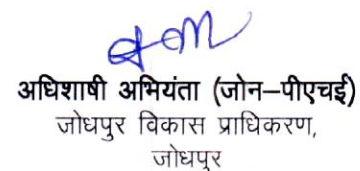 अधिशाषी अभियंता (जोन–पीएचई)
जोधपुर विकास प्राधिकरण,
जोधपुर